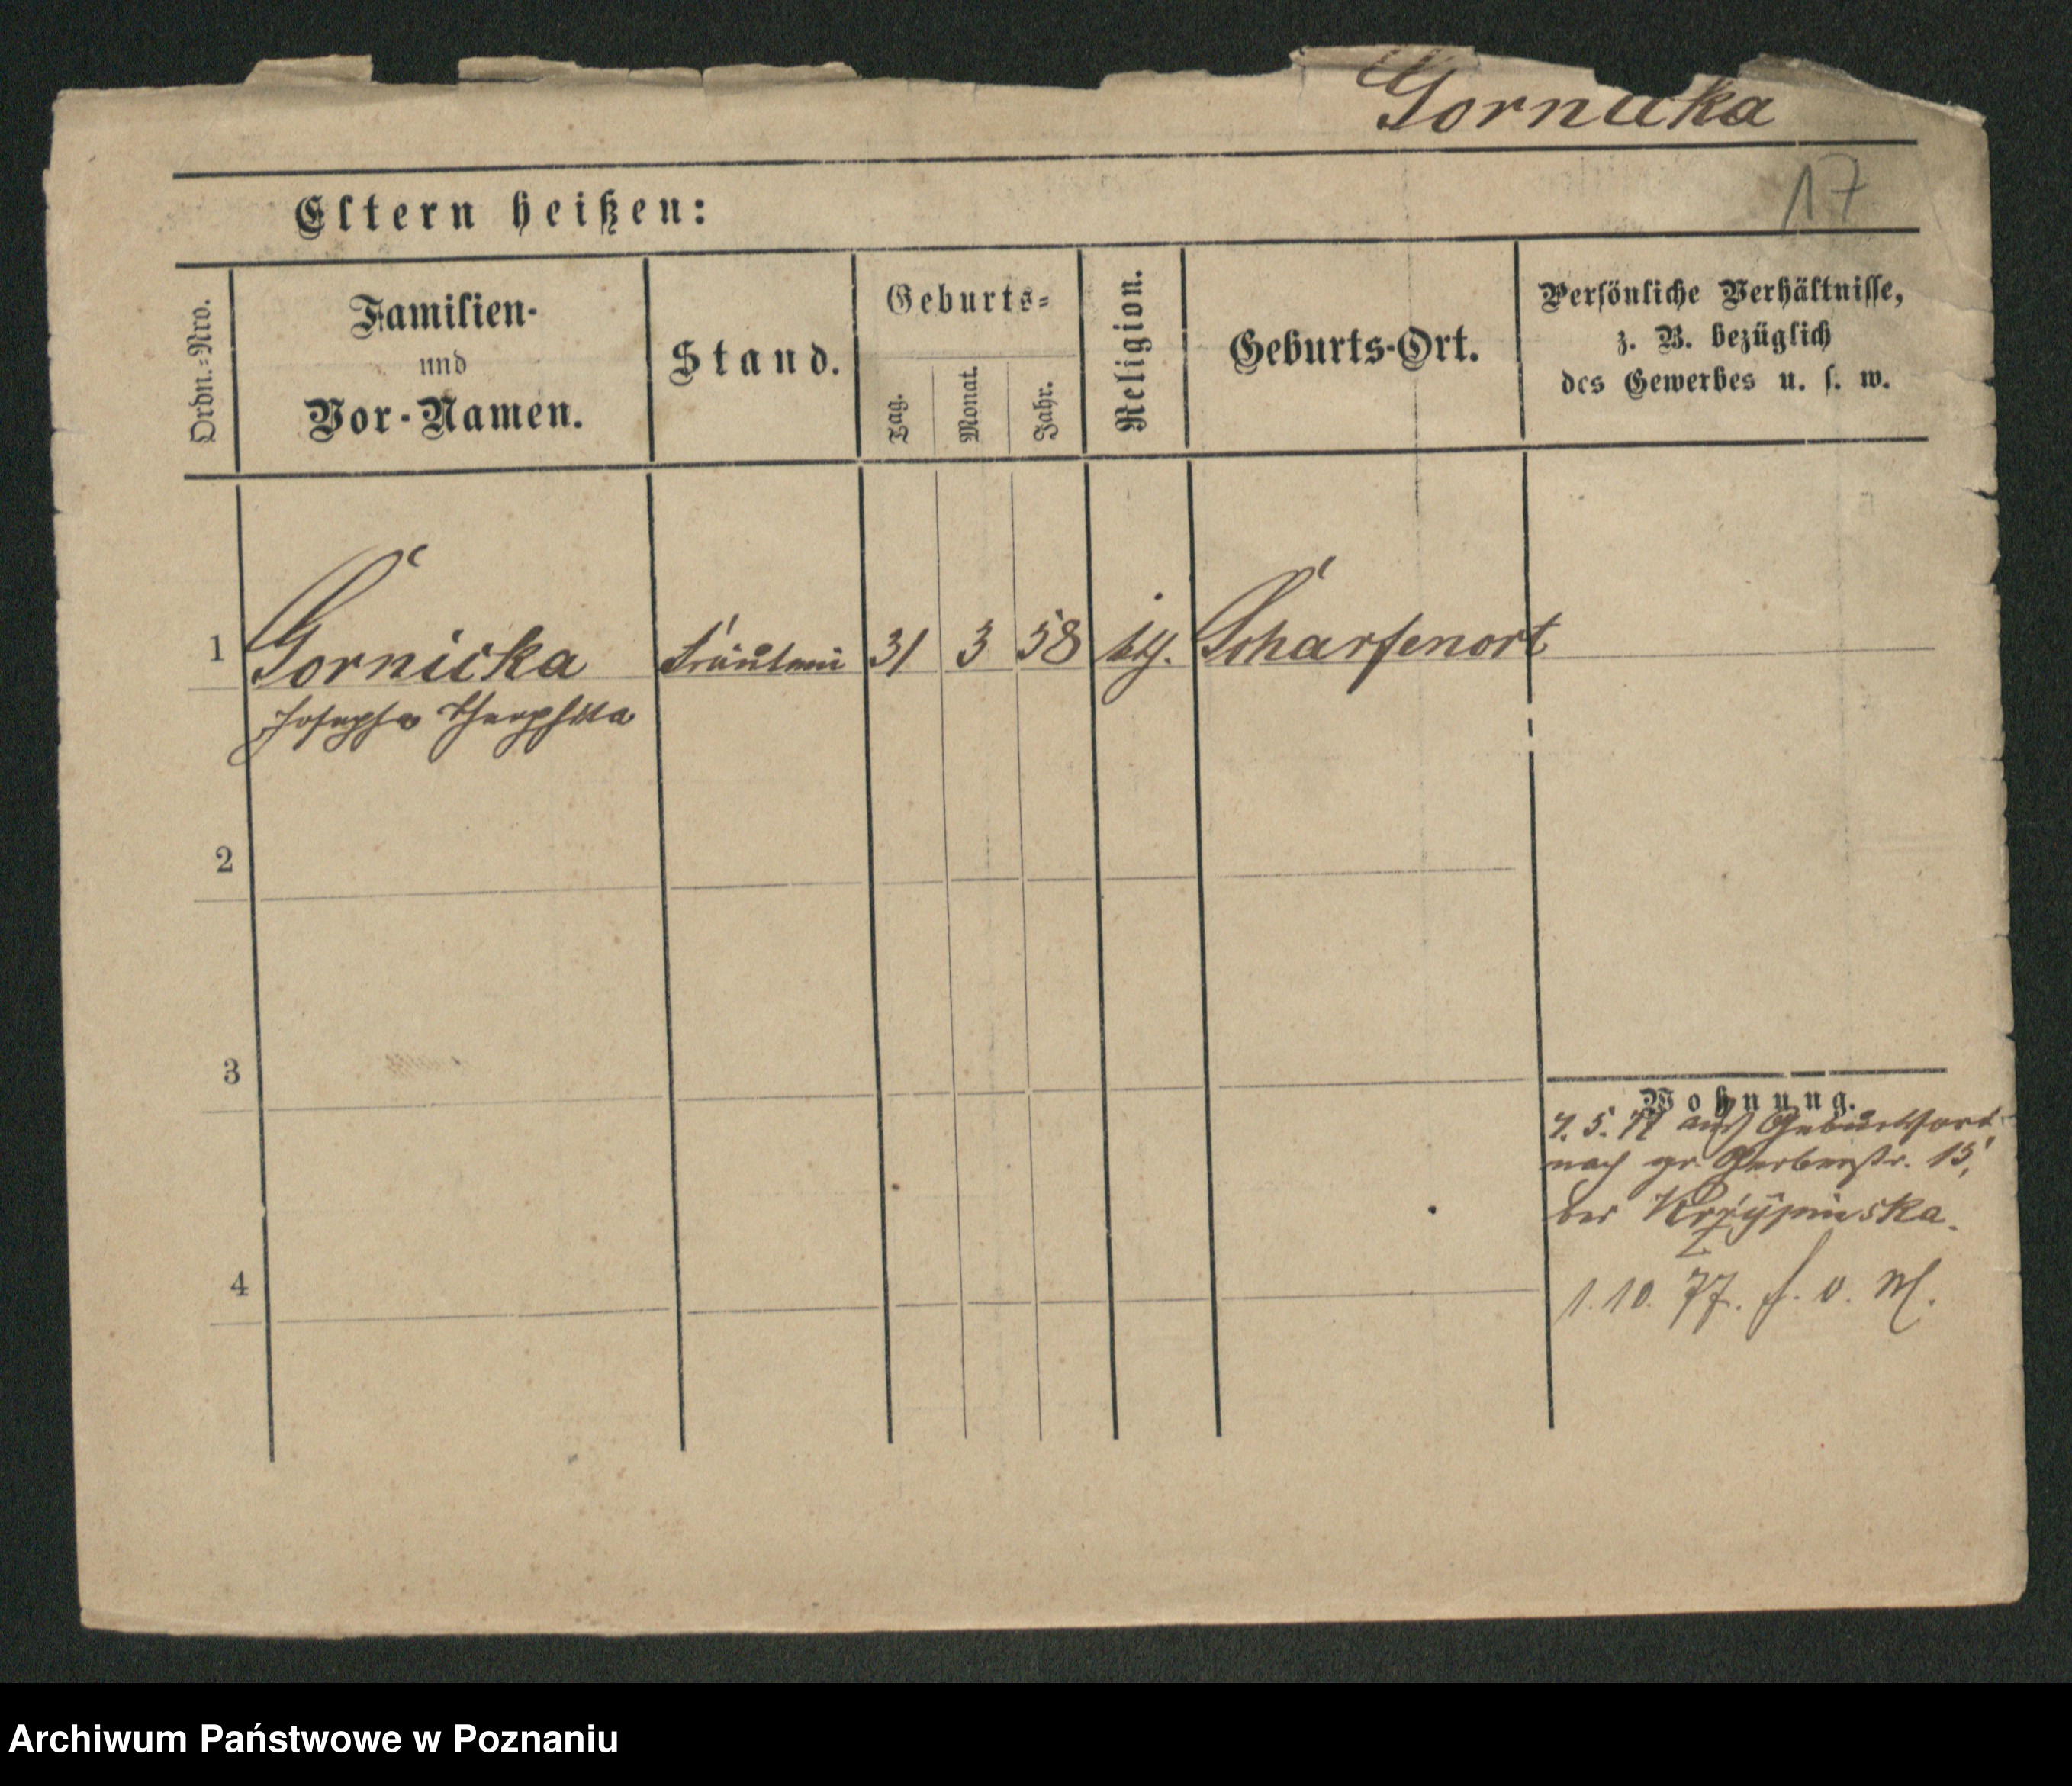 Gornicka
17
Eltern heißen:
Ordn.=Nro.
Familien-
und
Vor-Namen.
Stand.
Geburts=
Tag.
Monat.
Jahr.
Religion.
Geburts-Ort.
Persönliche Verhältnisse,
z. B. bezüglich
des Gewerbes u. s. w.
1 Gornicka Fräulein 31 3 58 Scharfenort
Josepha
2
3
4
Wohnung.
7. 5. 77 aus Geburtsort
nach gr. Gerberstr. 15,
bei
1. 10. 77. f. v. M.
Archiwum Państwowe w Poznaniu